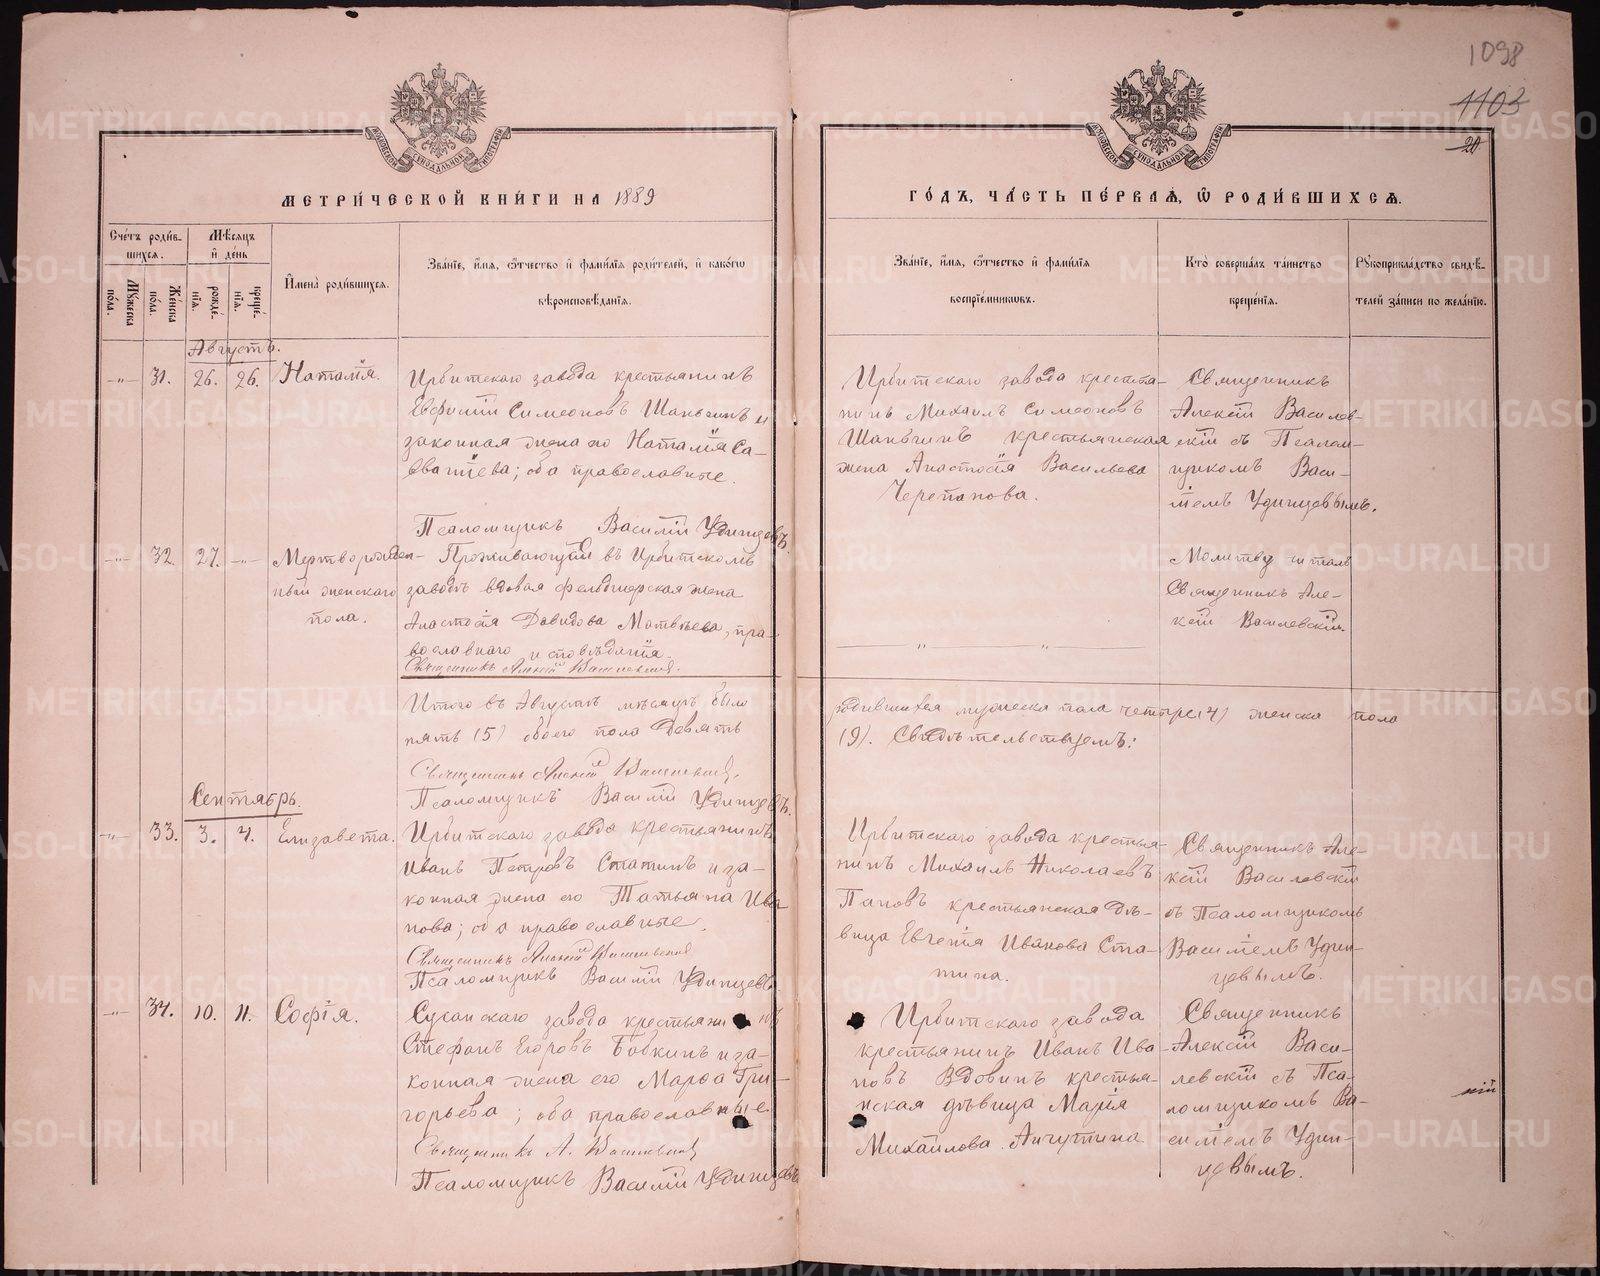 1098
1103
20
МОСКОВСКОЙ СѴНОДАЛЬНОЙ ТИПОГРАФІИ
МОСКОВСКОЙ СѴНОДАЛЬНОЙ ТИПОГРАФІИ
МЕТРИ́ЧЕСКОЙ КНИ́ГИ НА 1889
ГО́ДЪ, ЧА́СТЬ ПЕ́РВАѦ, Ѡ РОДИ́ВШИХСѦ.
Сче́тъ роди́в-
шихсѧ.
Мѣ́сѧцъ
и҆ де́нь
Мꙋ́жеска
по́ла.
Же́нска
по́ла.
рожде́-
нїѧ.
креще́-
нїѧ.
И҆мена̀ роди́вшихсѧ.
Зва́нїе, и҆́мѧ, ѻ҆́тчество и҆ фами́лїѧ роди́телей, и҆ како́гѡ
вѣроисповѣ́данїѧ.
Зва́нїе, и҆́мѧ, ѻ҆́тчество и҆ фами́лїѧ
воспрїе́мникѡвъ.
Кто̀ соверша́лъ та́инство
креще́нїѧ.
Рꙋкоприкла́дство свидѣ́-
телей за́писи по жела́нїю.
Августъ.
-"- 31. 26. 26. Наталія.
Ирбитскаго завода крестьянинъ
Евфимій Симеоновъ Шаньгинъ и
законная жена его Наталія Са-
ватіева; оба православные.
Псаломщикъ Василій Удинцевъ.
Ирбитскаго завода крестья-
нинъ Михаилъ Симеоновъ
Шаньгинъ крестьянская
жена Анастасія Васильева
Черепанова.
Священникъ
Алексій Василев-
скій съ Псалом-
щикомъ Васи-
ліемъ Удинцевымъ.
-"- 32. 27. -"- Мертворожден-
ный женскаго
пола.
Проживающей въ Ирбитскомъ
заводѣ вдовая фельдшерская жена
Анастасія Давидова Матвѣева, пра-
вославнаго исповѣданія.
Священникъ Алексій Василевскій.
" "
Молитву читалъ
Священникъ Але-
ксій Василевскій.
Итого въ Августѣ мѣсяцѣ было
родившихся мужеска пола четыре (4) женска пола
пять (5) обоего пола Девять
(9). Свидѣтельствуемъ:
Священникъ Алексій Василевскій.
Псаломщикъ Василій Удинцевъ.
Сентябрь.
-"- 33. 3. 4. Елизавета.
Ирбитскаго завода крестьянинъ
Иванъ Петровъ Статинъ и за-
конная жена его Татьяна Ива-
нова; оба православные.
Священникъ Алексій Василевскій
Псаломщикъ Василій Удинцевъ.
Ирбитскаго завода крестья-
нинъ Михаилъ Николаевъ
Пановъ крестьянская дѣ-
вица Евгенія Иванова Ста-
тина.
Священникъ Але-
ксій Василевскій
съ Псаломщикомъ
Василіемъ Удин-
цевымъ.
-"- 34. 10. 11. Софія.
Сусанскаго завода крестьянинъ
Стефанъ Егоровъ Бабкинъ и за-
конная жена его Марѳа Гри-
горьева; оба православные.
Священникъ А. Василевскій
Псаломщикъ Василій Удинцевъ
Ирбитскаго завода
крестьянинъ Иванъ Ива-
новъ Вдовинъ крестья-
нская дѣвица Марія
Михайлова Аничутина.
Священникъ
Алексій Васи-
левскій съ Пса-
ломщикомъ Ва-
силіемъ Удин-
цевымъ.
METRIKI.GASO-URAL.RU